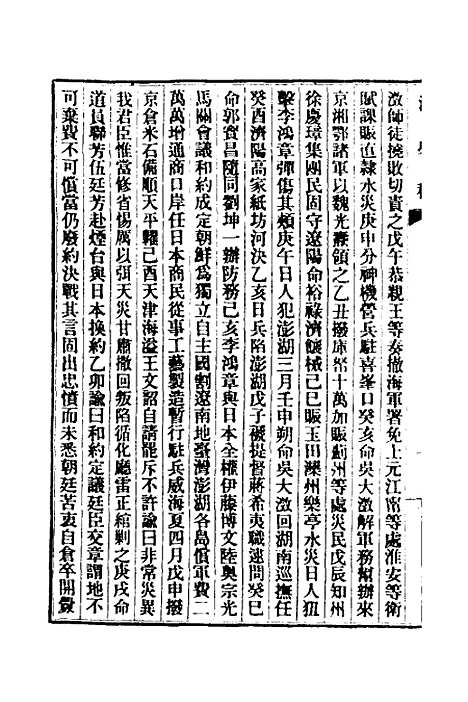 澂師徒撓敗切責之戊午恭親王等奏撤海軍署免上元江甯等處淮安等衛
賦課賑直隸水災庚申分神機營兵駐喜峯口癸亥命吳大澂解軍務幫辦來
京湘鄂諸軍以魏光燾領之乙丑撥庫帑十萬加賑薊州等處災民戊辰知州
徐慶璋集團民固守遼陽命裕祿濟餉械己巳賑玉田灤州樂亭水災日人狙
擊李鴻章彈傷其頰庚午日人犯澎湖三月壬申朔命吳大澂回湖南巡撫任
癸酉濟陽高家紙坊河決乙亥日兵陷澎湖戊子褫提督蔣希夷職速問癸巳
命郭寶昌隨同劉坤一辦防務己亥李鴻章與日本全權伊藤博文陸奧宗光
馬關會議和約成定朝鮮爲獨立自主國割遼南地臺灣澎湖各島償軍費二
萬萬增通商口岸任日本商民從事工藝製造暫行駐兵威海夏四月戊申撥
京倉米石備順天平糶己酉天津海溢王文詔自請罷斥不許諭曰非常災異
我君臣惟當修省惕厲以弭天災甘肅撤回叛陷循化廳雷正綰剿之庚戌命
道員聯芳伍廷芳赴煙台與日本換約乙卯諭曰和約定議廷臣交章謂地不
可棄費不可償當仍廢約決戰其言固出忠憤而未悉朝廷苦衷自倉卒開釁